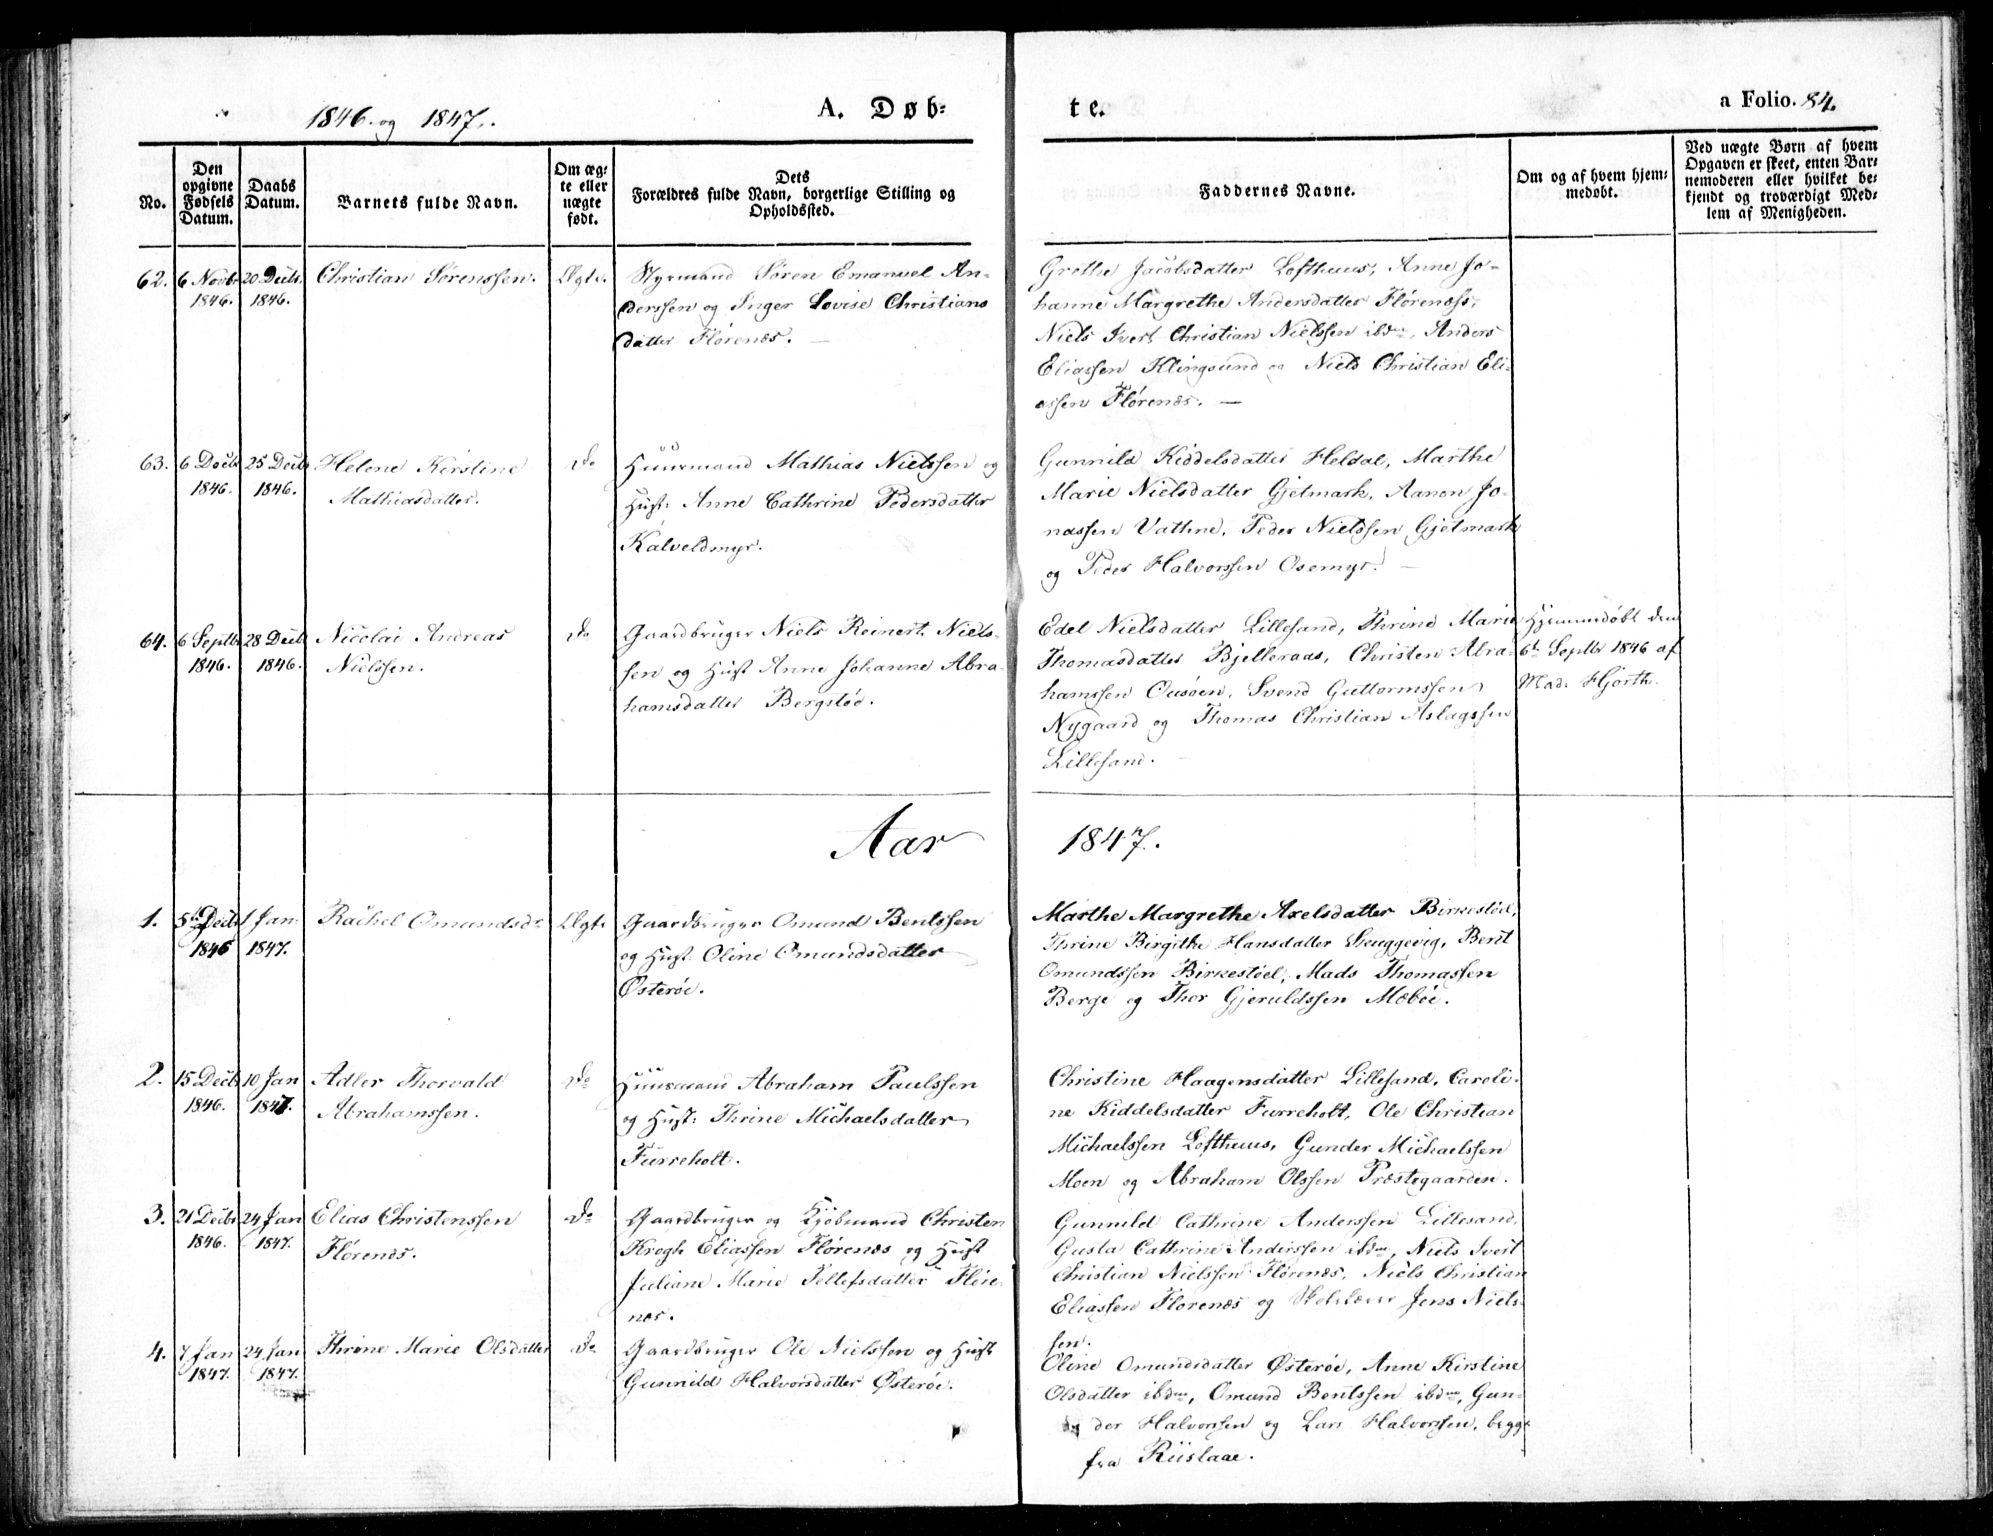 1846 og 1847.
A. Døb-
te.
a Folio. 84.
No.
Den
opgivne
Fødsels
Datum.
Daabs
Datum.
Barnets fulde Navn.
Om æg-
te eller
uægte
født.
Dets
Forældres fulde Navn, borgerlige Stilling og
Opholdssted.
Faddernes Navne.
Om og af hvem hjem-
medøbt.
Ved uægte Børn af hvem
Opgaven er skeet, enten Bar-
nemoderen eller hvilket be-
kjendt og troværdigt Med-
lem af Menigheden.
62.
6 Novbr
1846.
20 Decbr.
1846.
Christian Sørenssen.
Ægte.
Styrmand Søren Emanuel An-
derssen og Inger Lovise Christians
datter Flørenæs.
Grethe Jacobsdatter Lofthuus, Anne Jo-
hanne Margrethe Andersdatter Flørenæss,
Niels Ivert Christian Nielssen ibdm, Anders
Eliassen Klingsund og Niels Christian Eli-
assen Flørenæs. —
63.
6 Decbr
1846.
25 Decbr
1846.
Helene Kirstine
Mathiasdatter.
Do
Huusmand Mathias Nielssen og
Hust: Anne Cathrine Pedersdatter
Kalveldmyr.
Gunnild Kiddelsdatter Heldal, Marthe
Marie Nielsdatter Gjetmark, Aanon Jo-
nassen Vathne, Peder Nielssen Gjetmark
og Peder Halvorssen Osemyr. —
64.
6 Septbr
1846.
28 Decbr
1846.
Nicolai Andreas
Nielssen.
Do
Gaardbruger Niels Reinert Niels-
sen og Hust Anne Johanne Abra-
hamsdatter Bergstøe.
Edel Nielsdatter Lillesand, Thrine Marie
Thomasdatter Bjelleraas, Christen Abra-
hamssen Ousøen, Svend Guttormssen
Nygaard og Thomas Christian Aslagssen
Lillesand. —
Hjemmedøbt den
6te Septbr 1846 af
Mad: Hjorth.
Aar 1847.
1.
5te Decbr
1846
1 Jan.
1847.
Rachel Omundsdr
Ægte
Gaardbruger Omund Bentssen
og Hust: Oline Omundsdatter
Østerøe.
Marthe Margrethe Axelsdatter Birkestøel,
Thrine Birgithe Hansdatter Skuggevig, Bent
Omundssen Birkestøel, Mads Thomassen
Berge og Thor Gjeruldssen Mæbøe.
2.
15 Decbr
1846.
10 Jan
1847.
Adler Thorvald
Abrahamssen.
Do
Huusmand Abraham Paulssen
og Hust: Thrine Michaelsdatter
Furreholt.
Christine Haagensdatter Lillesand, Caroli-
ne Kiddelsdatter Furreholt, Ole Christian
Michaelssen Lofthuus, Gunder Michaelssen
Moen og Abraham Olssen Præstegaarden.
3.
21 Decbr
1846.
24 Jan
1847.
Elias Christenssen
Flørenæs.
Do
Gaardbruger og Kjøbmand Christen
Krogh Eliassen Flørenæs og Hust
Juliane Marie Tellefsdatter Fløre-
næs.
Gunnild Cathrine Anderssen Lillesand,
Gusta Cathrine Anderssen ibdm, Niels Ivert
Christian Nielssen Flørenæs, Niels Christian
Eliassen Florenæs og Skolelærer Jens Niels-
sen.
4.
7 Jan
1847.
24 Jan
1847.
Thrine Marie Olsdatter
Do
Gaardbruger Ole Nielssen og Hust
Gunnild Halvorsdatter Østerøe.
Oline Omundsdatter Østerøe, Anne Kirstine
Olsdatter ibdm, Omund Bentssen ibdm, Gun-
der Halvorssen og Lars Halvorssen, begge
fra Riislaae.